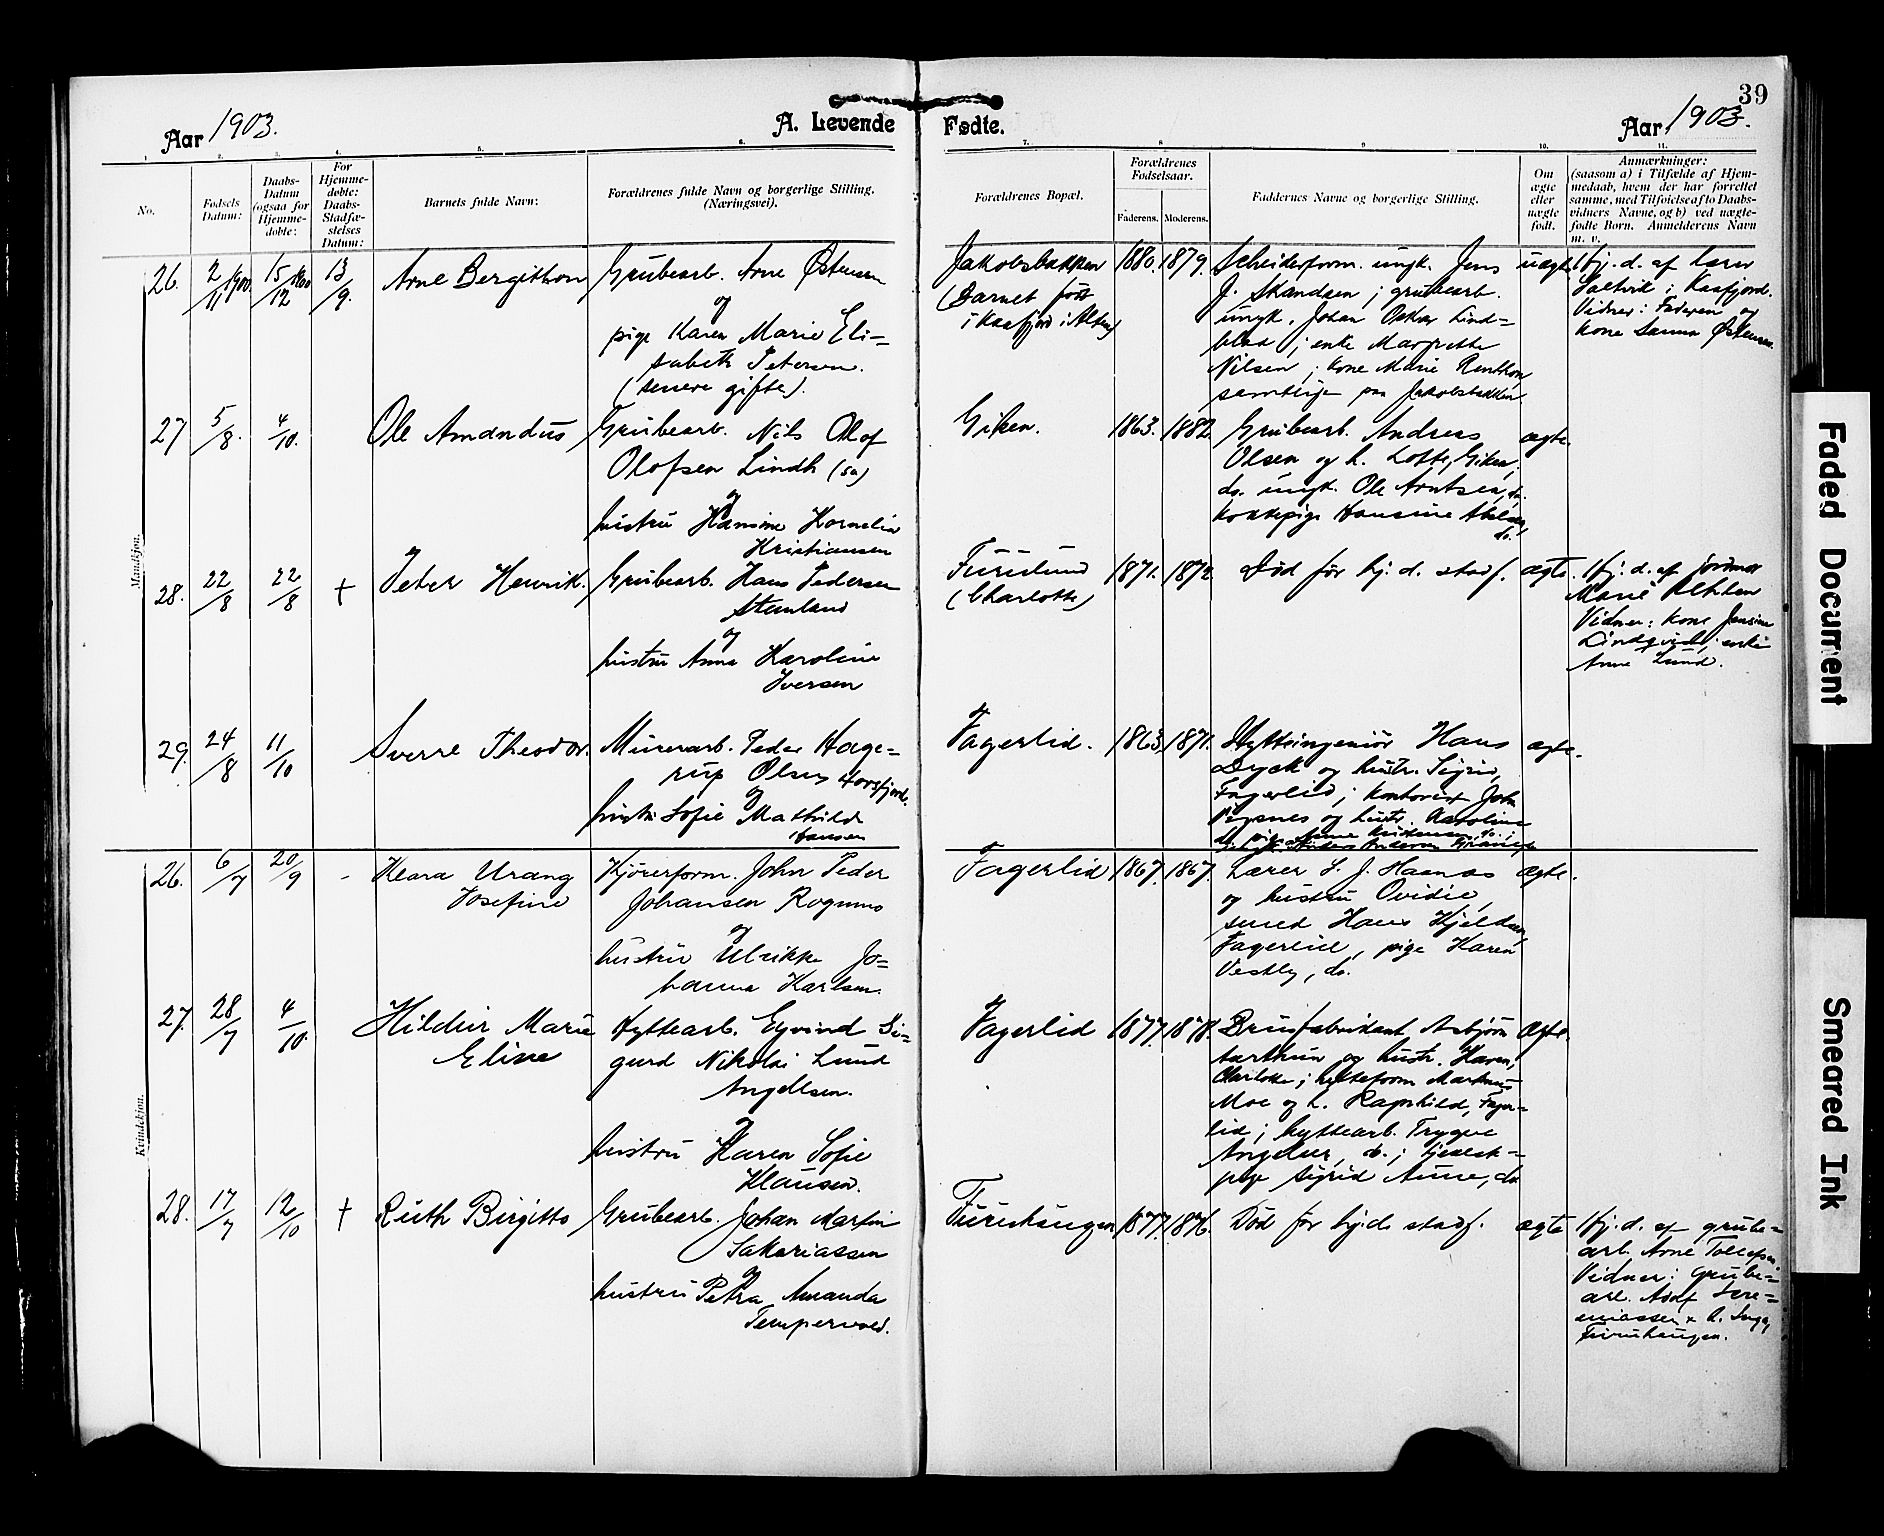 39
Aar 1903.
A. Levende Fødte.
Aar 1903.
1. 2. 3. 4. 5. 6. 7. 8. 9. 10. 11.
No.
Fødsels Datum:
Daabs-
Datum
(ogsaa for
Hjemme-
døbte:
For
Hjemme-
døbte:
Daabs-
Stadfæ-
stelses
Datum:
Barnets fulde Navn:
Forældrenes fulde Navn og borgerlige Stilling.
(Næringsvei).
Forældrenes Bopæl.
Forældrenes
Fødselsaar.
Faderens. Moderens.
Faddernes Navne og borgerlige Stilling.
Om
ægte
eller
uægte
født.
Anmærkninger:
(saasom a) i Tilfælde af Hjem-
medaab, hvem der har forrettet
samme, med Tilføielse af to Daabs-
vidners Navne, og b) ved uægte-
fødte Born. Anmelderens Navn
m. v.
Mandkjøn.
26. 2/11 1900. 15/12 1900 13/9.
Arne Bergithon
Grubearb. Arne Østensen
og
pige Karen Marie Eli=
sabeth Petersen.
(senere gifte).
Jakobsbakken
(Barnet født
i Kaafjord i Alten)
1880. 1879.
Scheiderform. ungk. Jens
J. Skandsen; grubearb.
ungk. Johan Oskar Lind=
blad; enke Margrethe
Nilsen; kone Marie
samtlige paa Jakobsbakken.
uægte
Hj. d. af lærer
i Kaafjord.
Vidner: Faderen og
kone Sanna Østensen.
27 5/8. 4/10.
Ole Amandus
Grubearb. Nils Olof
Olofsen Lindh (sv)
og
hustru Hansine Kornelia
Kristiansen
Giken.
1863. 1882.
Grubearb. Andreas
Olsen og h. Lotte, Giken;
do. ungk. Ole Arntsen, do.
kokkepige Hansine
do.
ægte.
28. 22/8 22/8 +
Peter Henrik.
Grubearb. Hans Pedersen
Stenland
og
hustru Anna Karoline
Iversen
Furulund
(Charlotte)
1871. 1872
Død før hj. d. stadf.
ægte.
Hj. d. af jordmor
Marie
Vidner: kone Jensine
Lindqvist; enke
Anne Lund.
29. 24/8 11/10
Sverre Theodor.
Murerarb. Peder Hage=
rup Olsen Korsfjord.
og
hustru Sofie Mathilde
Hansen
Fagerlid.
1863. 1871.
Hytteingeniør Hans
Dyck og hustr. Sigrid,
Fagerlid; kontorist John
og hustr. Karoline
ægte.
Kvindekjøn.
26. 6/7 20/9 -
Klara Urang
Josefine
Kjørerform. John Peder
Johansen Rognmo
og
hustru Ulrikke Jo=
hanna Karlsen.
Fagerlid
1867. 1867.
Lærer L. J. Haanæs
og hustru Ovidie,
smed Hans Kjeldsen,
Fagerlid, pige Karen
Vestby, do.
ægte.
27. 28/7 4/10.
Hildur Marie
Eline
Hyttearb. Eyvind Si=
gurd Nikolai Lund
Angellsen.
og
hustru Karen Sofie
Klausen.
Fagerlid
1877. 1878.
Brusfabrikant Asbjørn
og hustr. Karen,
Charlotte; hytteform. Markus
Moe og h. Ragnhild, Fager=
lid; hyttearb. Trygve
Angellsen, do.; tjeneste=
pige Sigrid Aune, do
ægte.
28. 17/7 12/10 +
Ruth Birgitte
Grubearb. Johan Martin
Sakariassen
og
hustru Petra Amanda
Tempervold.
Furuhaugen
1877. 1876.
Død før hj. d. stadf.
ægte
Hj. d. af grube=
arb. Arne Tollefsen.
Vidner: Grube=
arb. Adolf Jere=
miassen & h. Inga,
Furuhaugen.
Faded Document
Smeared Ink